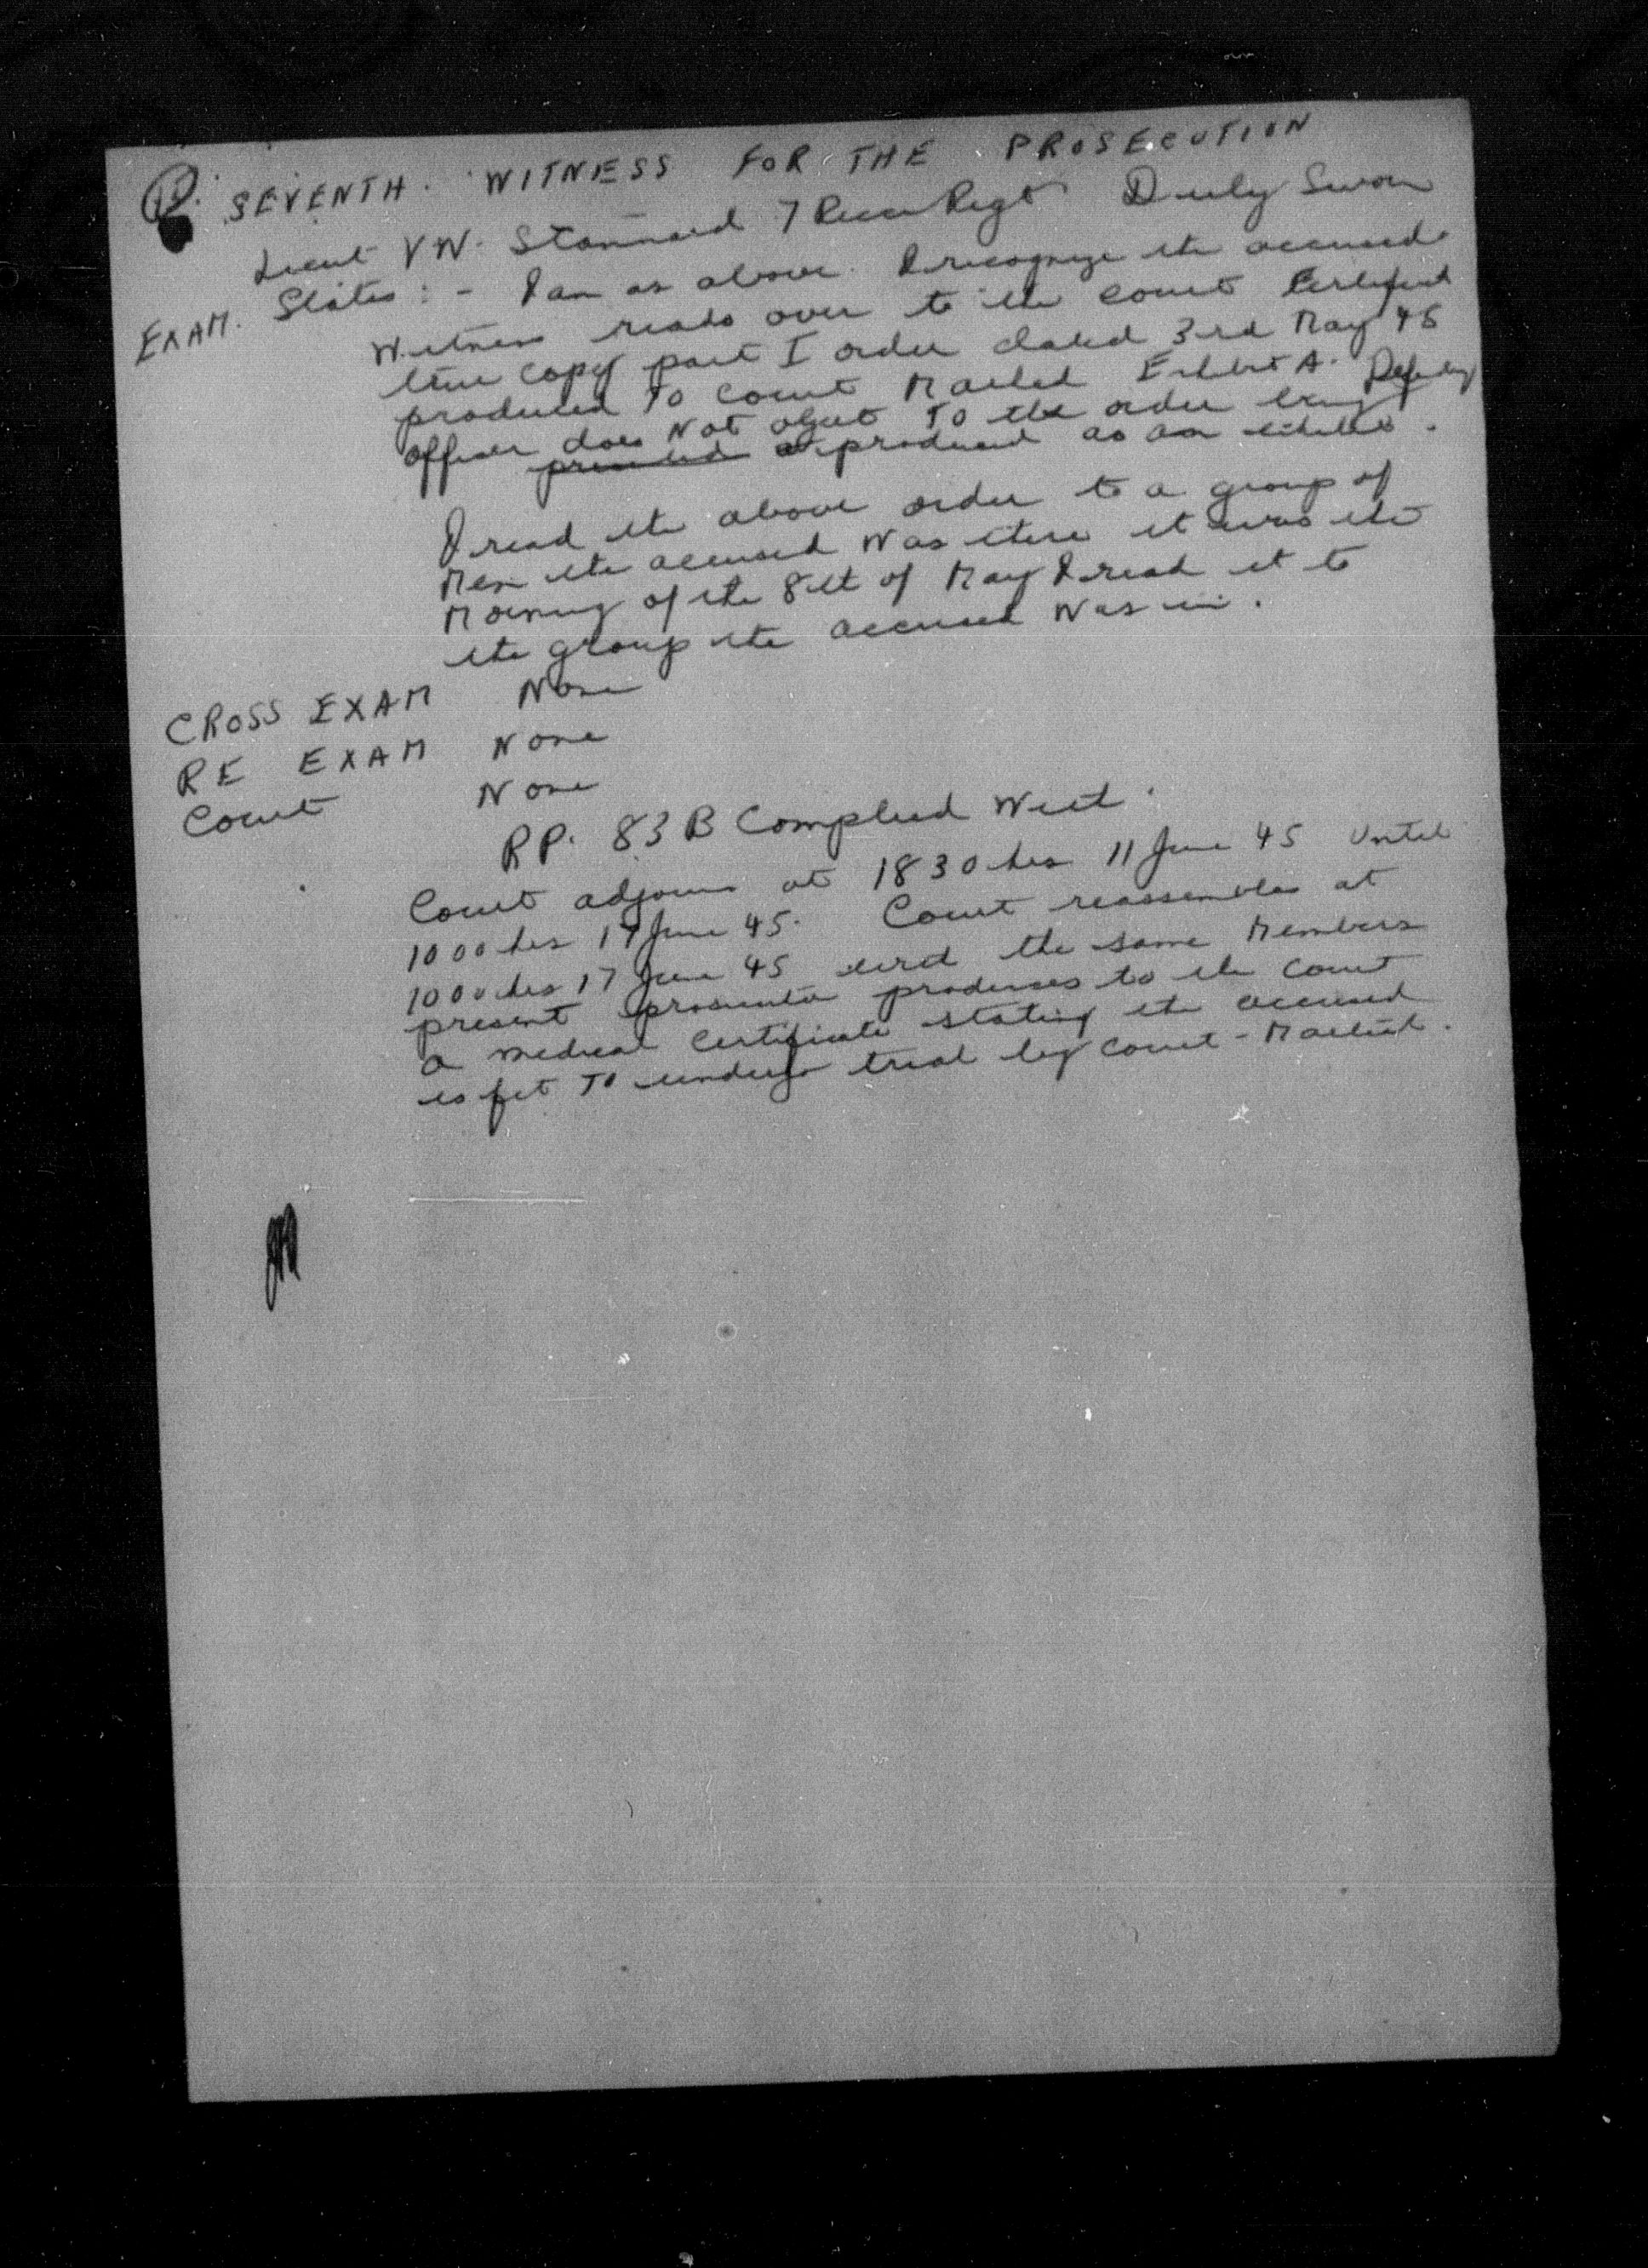 SEVENTH. WITNESS FOR THE PROSECUTION
Lieut V W. Stannard 7 Recce Regt Duly Sworn
EXAM. States : - I am as above. I recognize the accused
Witness reads over to the court Certified
true copy part I order dated 3rd May 45
produced to court Marked Exhibit A. Defending
officer does Not object To the order being
produced as an exhibit.
I read the above order to a group of
Men the accused Was there it was the
Morning of the 8th of May I read it to
the group the accused Was in.
CROSS EXAM None
RE EXAM None
Court None
RP. 83 B Complied With.
Court adjourns at 1830 hrs 11 June 45 Until
1000 hrs 17 June 45. Court reassembles at
1000 hrs 17 June 45 with the same Members
present prosecutor produces to the Court
a medical Certificate stating the accused
is fit To undergo trial by Court - Martial.